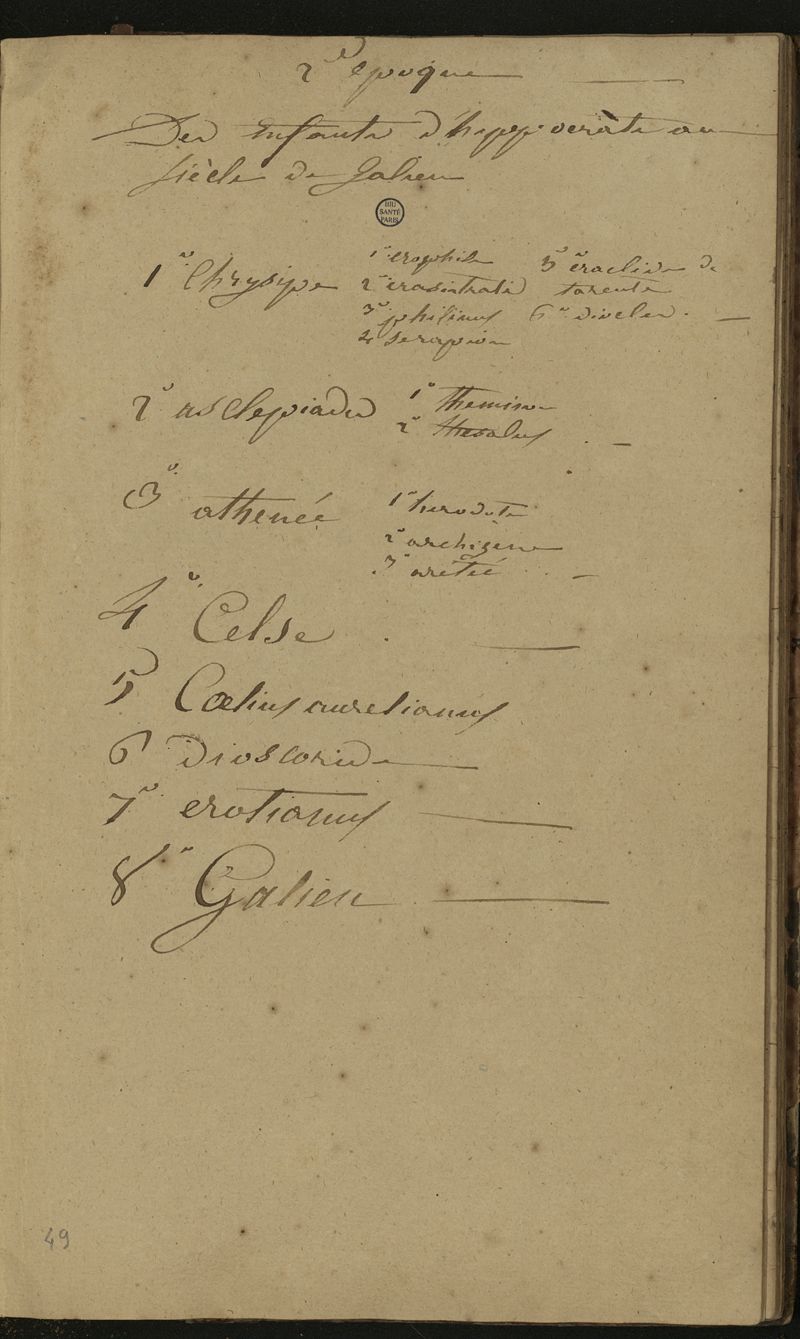 2e epoque
Des Enfants d'hyppocrate au
siècle de Galien
BIU
SANTÉ
PARIS
1o Chrysipe 1o erophile 5o eraclide de
2o erasistrate tarente
3o philinus 6o diocles.
4 serapion
2o asclepiade 1o themison
2o thessalus
3o athenée 1o herodote
2o archigene
3o aretée
4o Celse
5o Cœlius aurelianus
6o dioscoride
7o erotianus
8o Galien
49